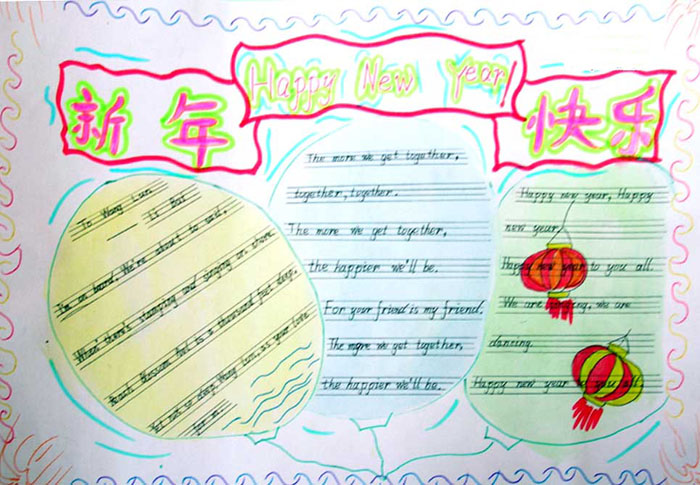 新年
Happy New Year
快乐
To Wang Lun
—— Li Bai
I'm on bard, We're about to sail,
When there's stamping and singing on shore.
Peach blossom is a thousand feet deep,
Yet not so deep, Wang Lun, as your love
for me.
The more we get together,
together, together.
The more we get together,
the happier we'll be.
For your friend is my friend.
The more we get together,
the happier we'll be.
Happy new year, Happy
new year,
Happy new year to you all.
We are singing, we are
dancing.
Happy new year to you all.